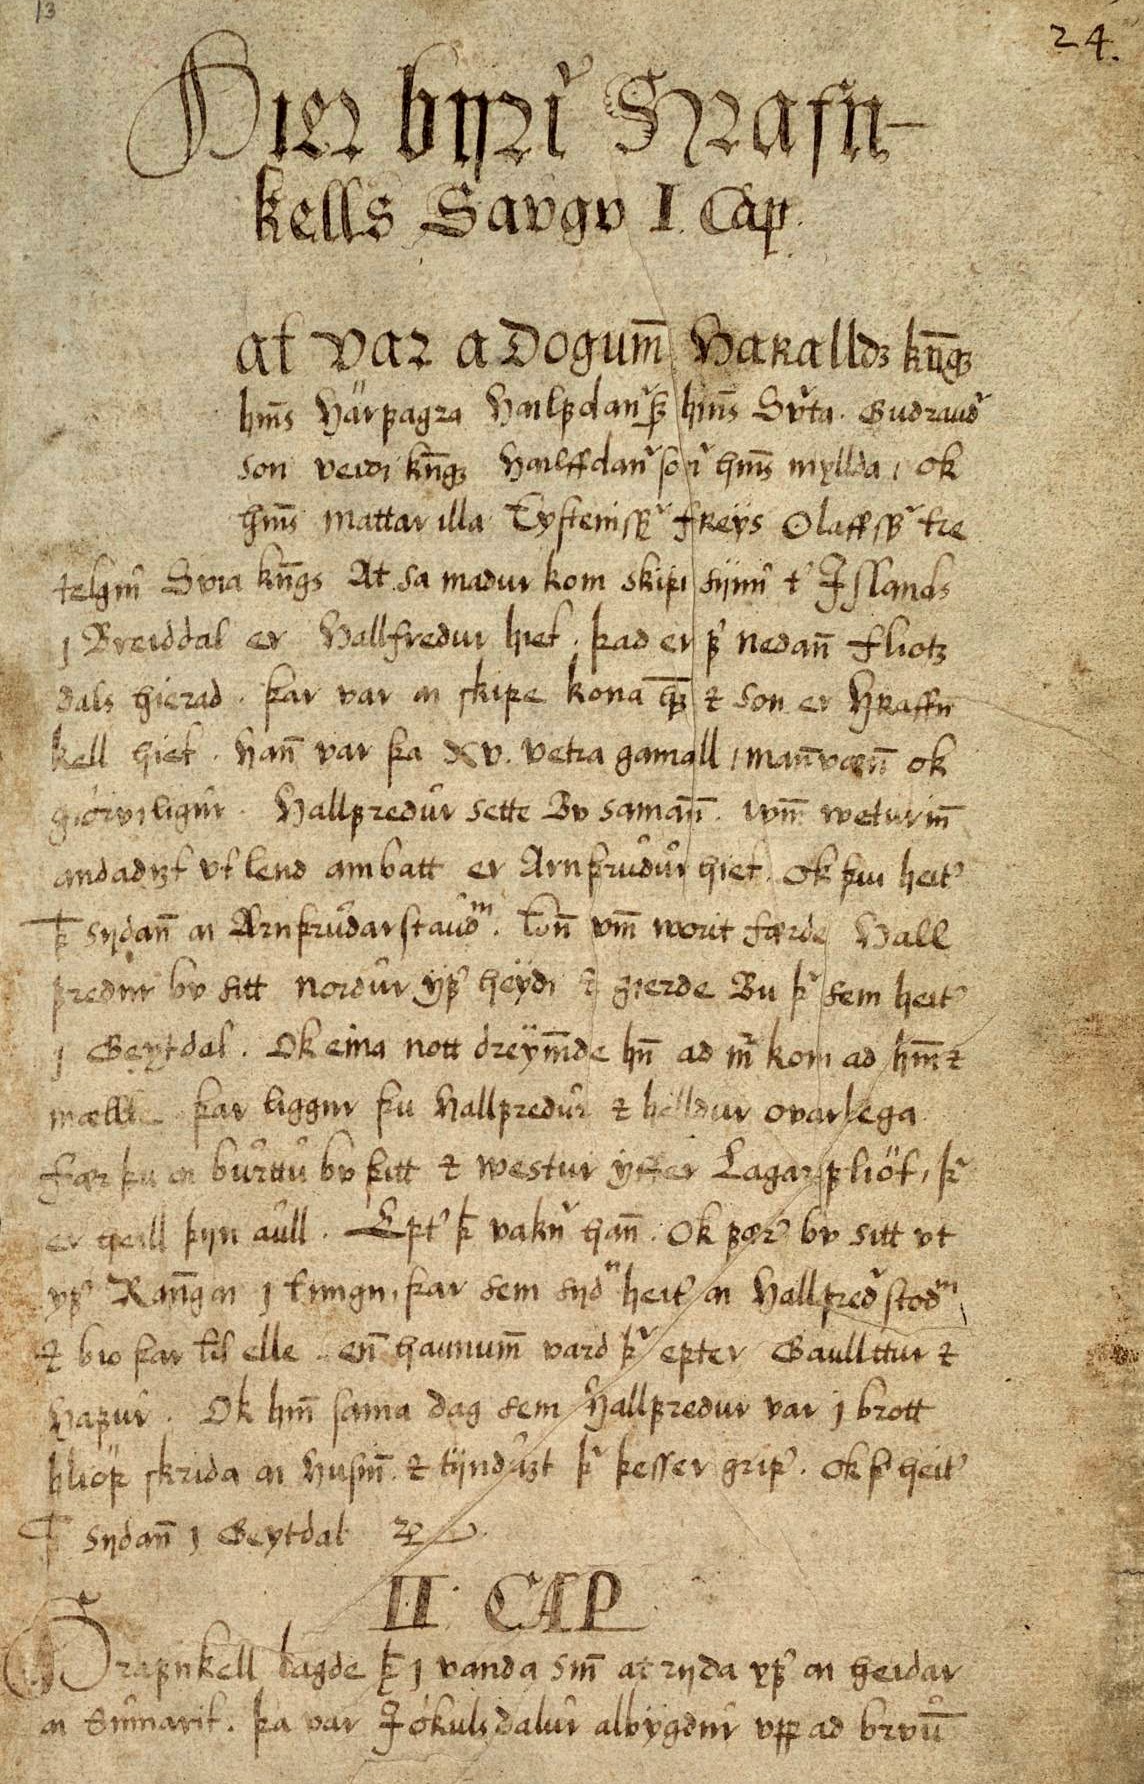 13
24.
Hier byriᷣ Hrafn-
kells Saugu I. Cap.
at var a Dogum̄ Haralldz kn̄gz
hm̄s Härfagra Haalfdanᷣ hm̄s Suᷣta. Gudraudᷣ
son veidi kn̄gz Haalffdanᷣ sonᷣ hm̄s myllda, ok
hm̄s mattar illa Eysteinssᷣ freÿs Olaffssᷣ tre
telgiu Svia kn̄gs At sa madur kom skipi sijnu t' Jslands
j Breiddal er Hallfredur hiet. þad er fͥ nedan̄ fliotz
dals hierad. þar var aa skipe kona hz̄ ⁊ son er Hraffn
kell hiet. Han̄ var þa XV. vetra gamall, man̄væn̄ ok
giórviligur. Hallfredur sette Bv saman̄. Um̄ weturin̄
andadizt vtlend ambatt er Arnþrudur hiet. Ok þui heit'
þ̄ sijdan̄ aa Arnþrudarstaudᵐ. En̄ vm̄ worit færde Hall
fredur bv sitt nordur yf' heÿdi ⁊ gierde Bu þᷣ sem heit'
j Geytdal. Ok eina nott dreÿm̄de hn̄ ad mᷣ kom ad hm̄ ⁊
mællte þar liggur þu Hallfredur ⁊ helldur ovarlega
fær þu aa burttu bv þitt ⁊ westur ÿffer Lagarfliöt, þᷣ
er heill þijn aull. Ept' þ̄ vaknᷣ han̄. Ok fær' bv sitt vt
yf' Ran̄gaa j tungu, þar sem sijdⁿ heit' aa Hallfredᷣstodᵐ
⁊ bio þar til elle. en̄ haunum̄ vard þᷣ epter Gaullttur ⁊
Hafur. Ok hin̄ sama dag sem Hallfredur var j brott
hliöp skrida aa husin̄. ⁊ tijnduzt þᷣ þesser grip'. Ok þ̄ heit'
þ̄ sijdan̄ j Geytdal
II. CAP
Hrafnkell lagde þ̄ j vanda sin̄ at rijda yf' aa heidar
aa sumarit. þa var Jökulsdalur albygdur vpp ad bruū